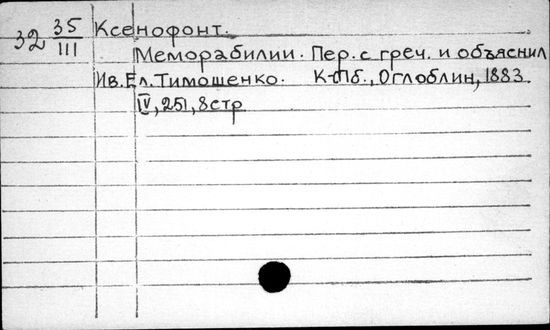 32 35/III Ксенофонт.
Меморабилии. Пер. с греч. и объяснил
Ив. Ел. Тимошенко. К-Пб., Оглоблин, 1883.
IV, 251, 8 стр